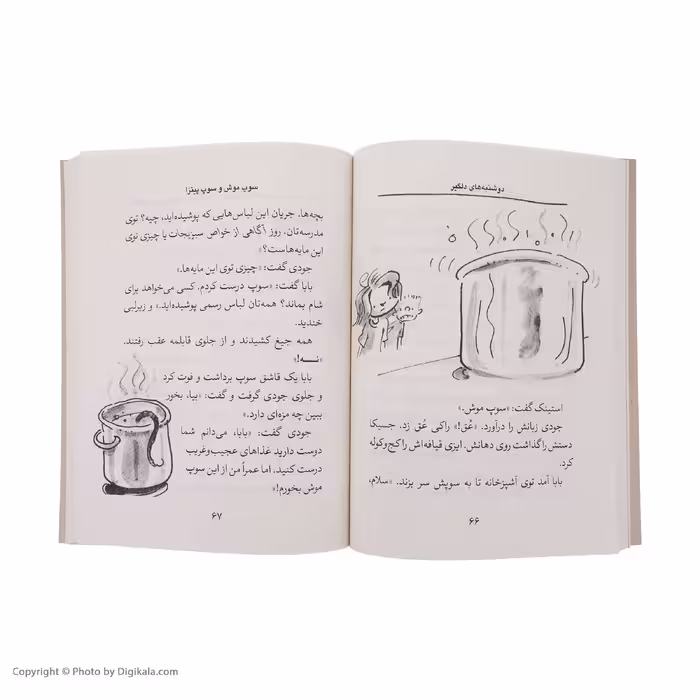 دوشنبه‌های دلگیر
استینک گفت: «سوپ موش.»
جودی زبانش را درآورد. «عُق!» راکی عُق زد. جسیکا
دستش را گذاشت روی دهانش. ایزی قیافه‌اش را کج‌وکوله
کرد.
بابا آمد توی آشپزخانه تا به سوپش سر بزند. «سلام،
۶۶
سوپ موش و سوپ پیتزا
بچه‌ها. جریان این لباس‌هایی که پوشیده‌اید، چیه؟ توی
مدرسه‌تان، روز آگاهی از خواص سبزیجات یا چیزی توی
این مایه‌هاست؟»
جودی گفت: «چیزی توی این مایه‌ها.»
بابا گفت: «سوپ درست کردم. کسی می‌خواهد برای
شام بماند؟ همه‌تان لباس رسمی پوشیده‌اید.» و زیرلبی
خندید.
همه جیغ کشیدند و از جلوی قابلمه عقب رفتند.
«نـــه!»
بابا یک قاشق سوپ برداشت و فوت کرد
و جلوی جودی گرفت و گفت: «بیا، بخور
ببین چه مزه‌ای دارد.»
جودی گفت: «بابا، می‌دانم شما
دوست دارید غذاهای عجیب‌وغریب
درست کنید. اما عمراً من از این سوپ
موش بخورم!»
۶۷
Copyright © Photo by Digikala.com